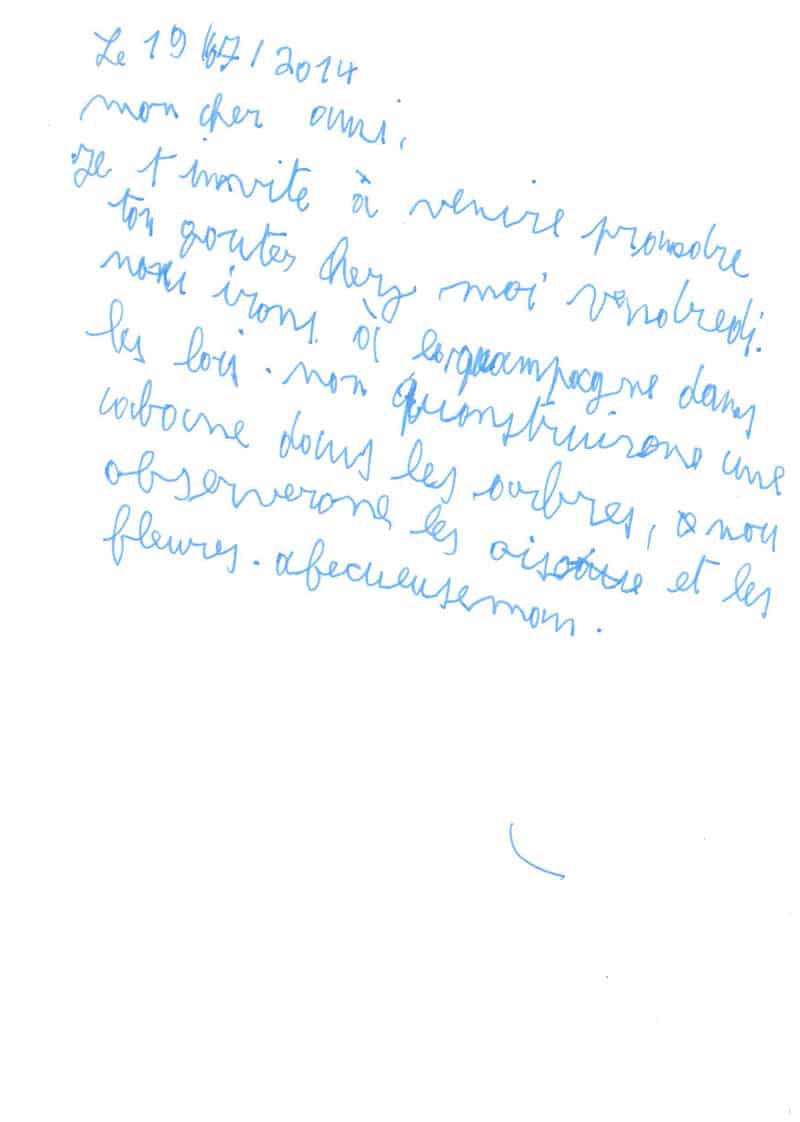 Le 19/07/2014
mon cher ami,
Je t'invite à venire prendre
ton gouter chez moi vendredi.
nous irons à quampagne dans
les bois. non quonstruirons une
cabane dans les arbres, nou
observerons les et les
fleures. afecueusemans.